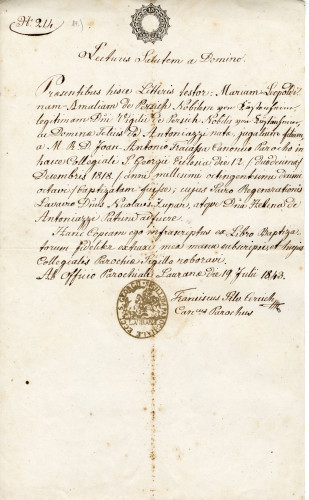 No. 214.
Lecturis Salutem a Domino.
Praesentibus hisce Litteris testor: Mariam Leopoldi-
nam Amaliam de Persich Nobilem von
legitimam Dni Vigilii de Persich Nobilis von
ac Domina Felicis de Antoniazzi nata, jugalium filiam
a M. R. D. Joan. Antonio Canonico Parocho in
hacce Collegiata S. Georgii Ecclesia die 12 / duodecima /
Decembris 1818. / anni millesimi octingentesimi decimi
octavi / baptizatam fuisse; cujus Sacro Regenerationis
Lavacro Dnus Nicolaus Zupar, atque Dna Helena de
Antoniazzi Patrini adfuere.
Hanc Copiam ego infrascriptus ex Libro Baptiza-
torum fideliter extraxi, mea manu subscripsi, et hujus
Collegialis Parochiae Sigillo roboravi.
Ab Officio Parochiali Lauranae die 19 Julii 1843.
Franciscus
Can.cus Parochus